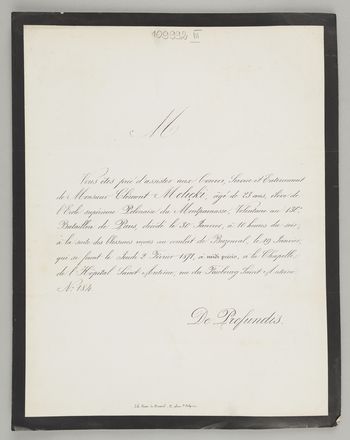 109992 III
M
Vous êtes prié d'assister aux Convoi, Service et Enterrement
de Monsieur Clément Molicki, âgé de 23 ans, élève de
l'École supérieure Polonaise du Montparnasse, Volontaire au 136e
Bataillon de Paris, décédé le 30 Janvier, à 10 heures du soir,
à la suite des blessures reçues au combat de Buzenval, le 19 Janvier,
qui se feront le Jeudi 2 Février 1871, à midi précis, à la Chapelle
de l'Hôpital Saint-Antoine, rue du Faubourg Saint-Antoine
No 184.
De Profundis.